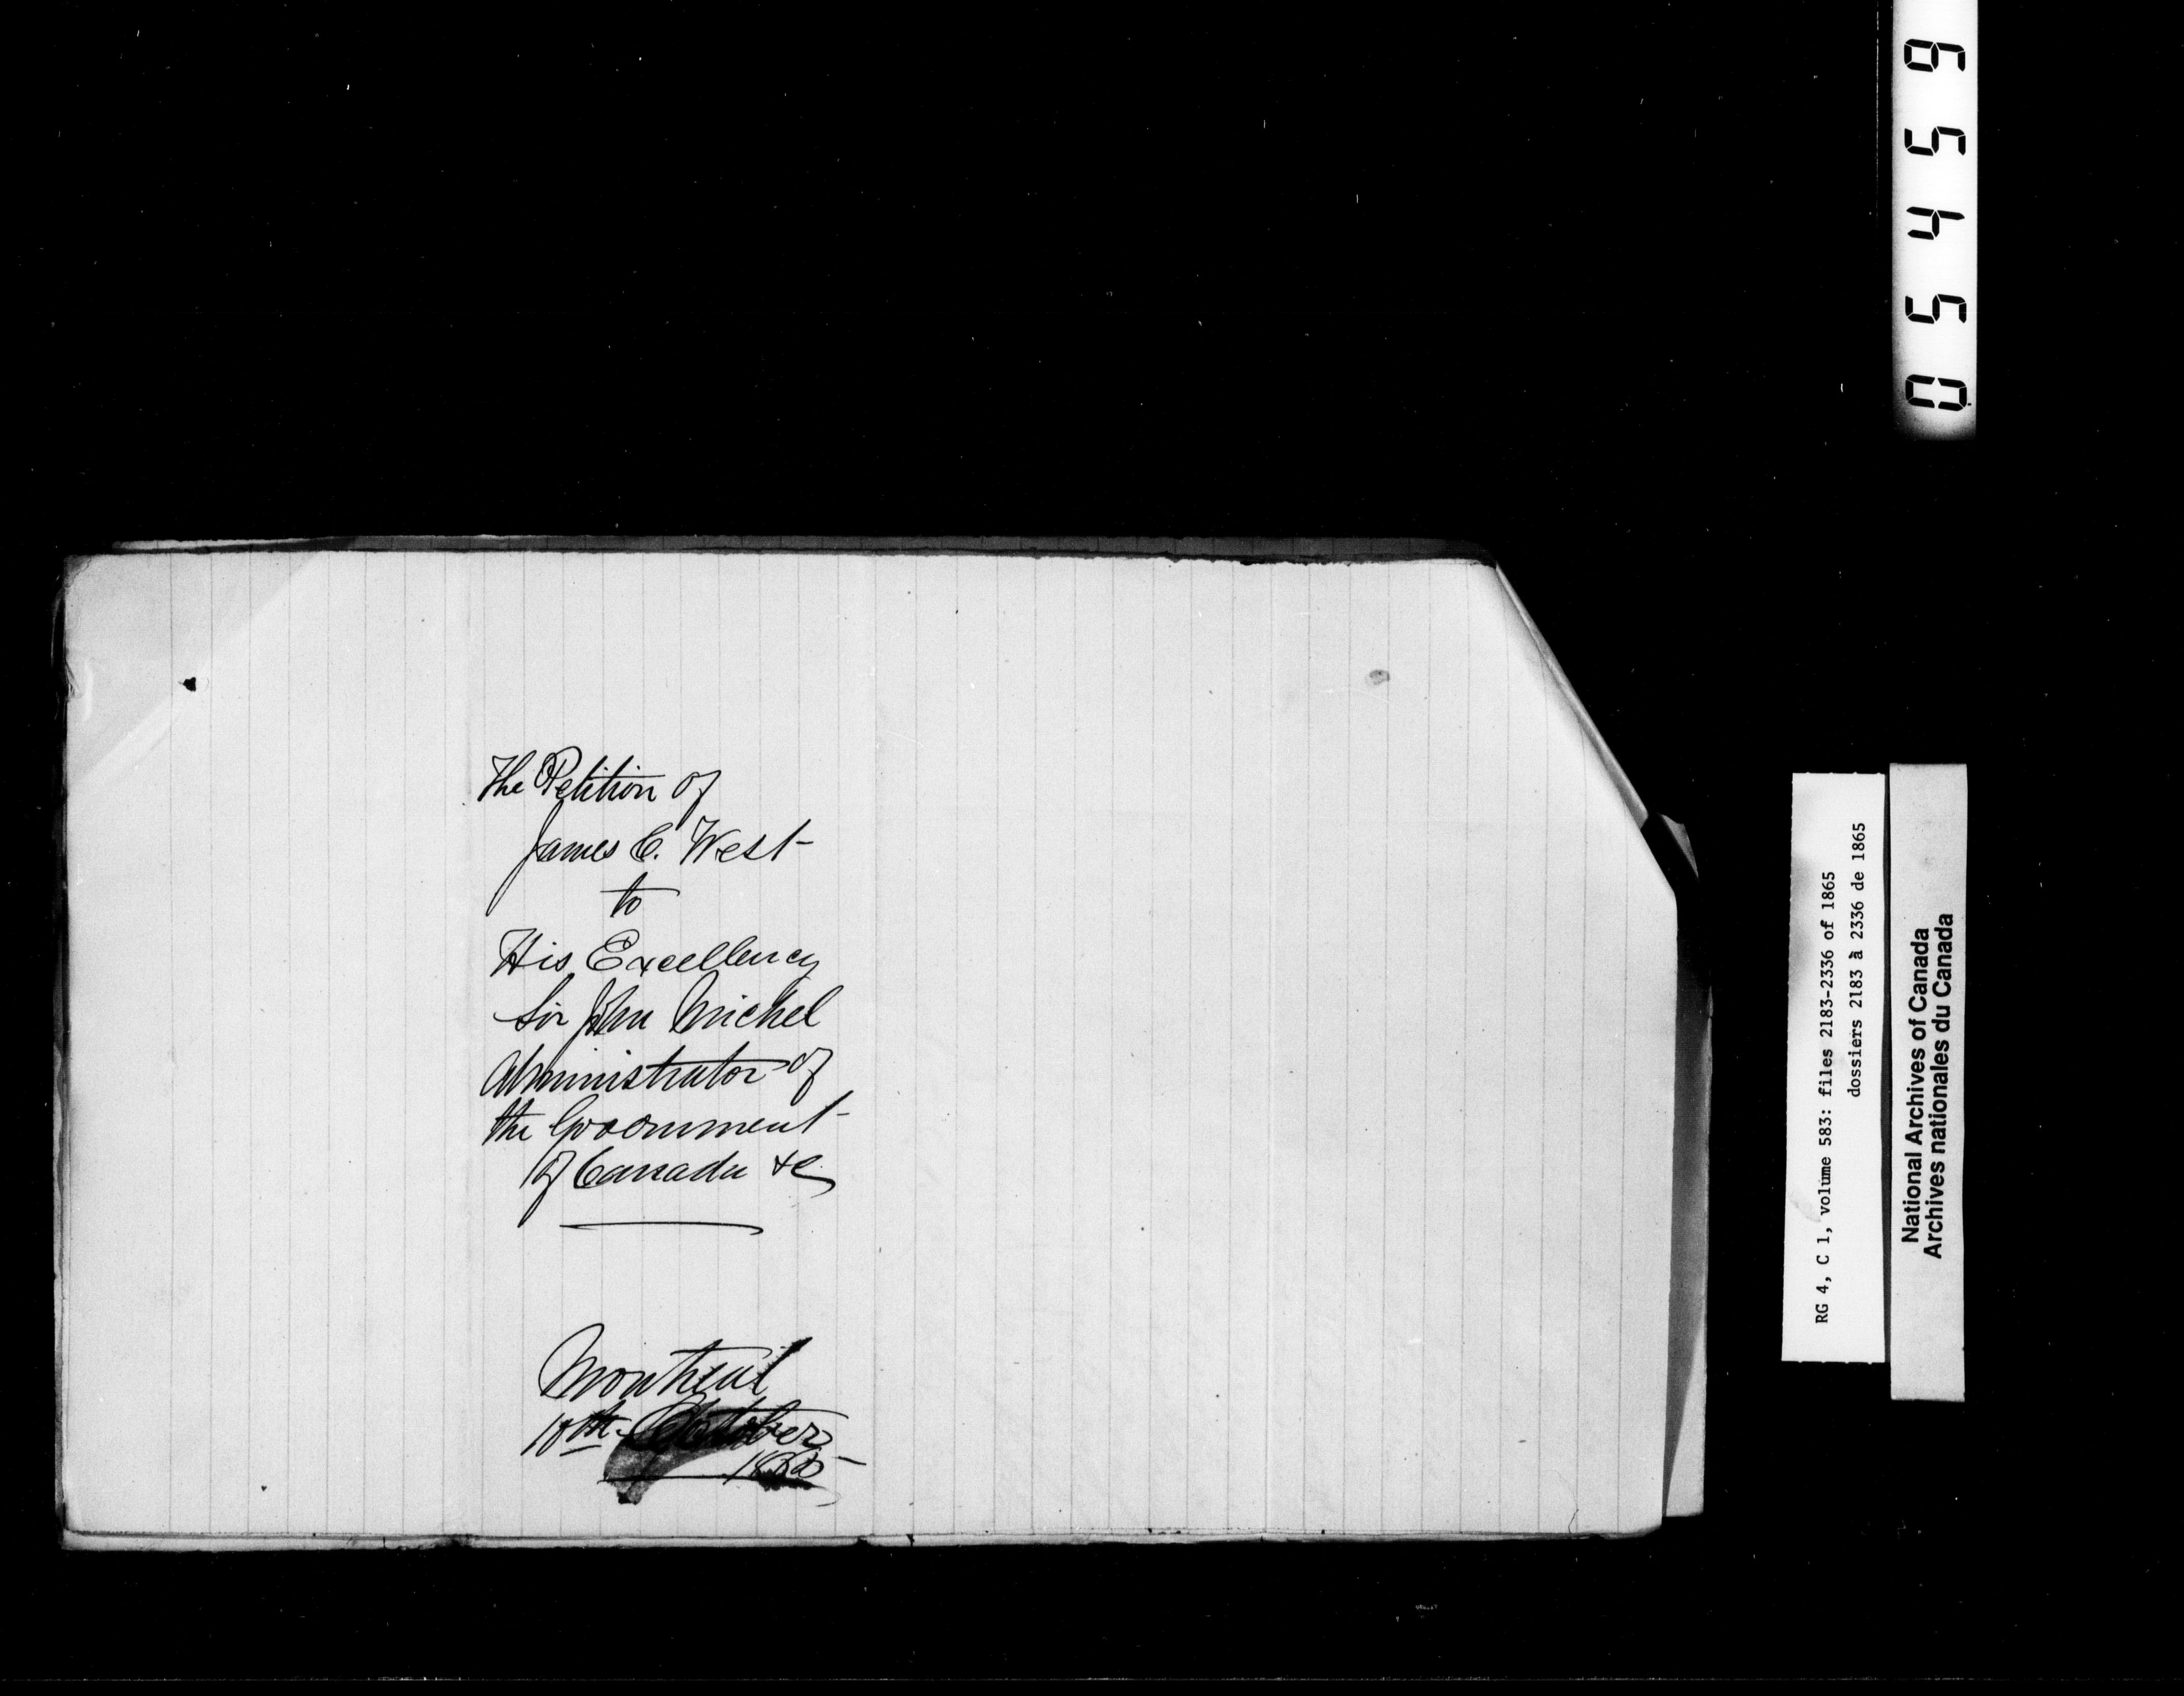 The Petition of
James C. West
to
His Excellency
Sir John Michel
Administrator of
the Government
of Canada &c
Montreal
October
1865
05459
RG 4, C 1, volume 583: files 2183-2336 of 1865
dossiers 2183 à 2336 de 1865
National Archives of Canada
Archives nationales du Canada